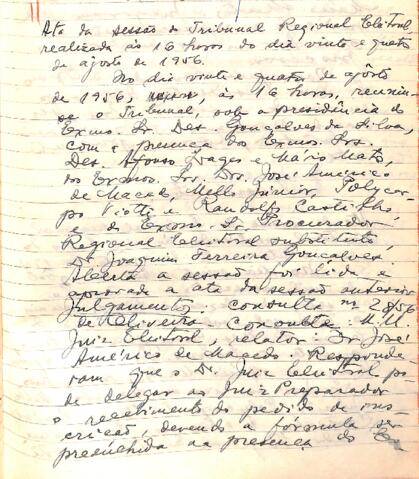 Ata da sessão do Tribunal Regional Eleitoral
realizada às 16 horas do dia vinte e quatro
de agosto de 1956.
No dia vinte e quatro de agôsto
de 1956, às 16 horas, reuniu-
se o Tribunal, sob a presidência do
Exmo. Sr. Des. Gonçalves da Silva,
com a presença dos Exmos. Srs.
Des. Afonso Lages e Mário Matos,
dos Exmos. Srs. Drs. José Américo
de Macedo, Mello Júnior, Polycar-
po Viotti e Randolfo
e do Exmo. Sr. Procurador
Regional Eleitoral substituto,
Dr. Joaquim Ferreira Gonçalves.
Aberta a sessão foi lida e
aprovada a ata da sessão anterior
Julgamentos: consulta nº 28/56
de Oliveira. Consulta: M.M.
Juiz Eleitoral, relator: Dr. José
Américo de Macedo. Responde-
ram que o Dr. Juiz Eleitoral po-
de delegar ao Juiz Preparador
o recebimento do pedido de ins-
crição, devendo a fórmula ser
preenchida na presença do